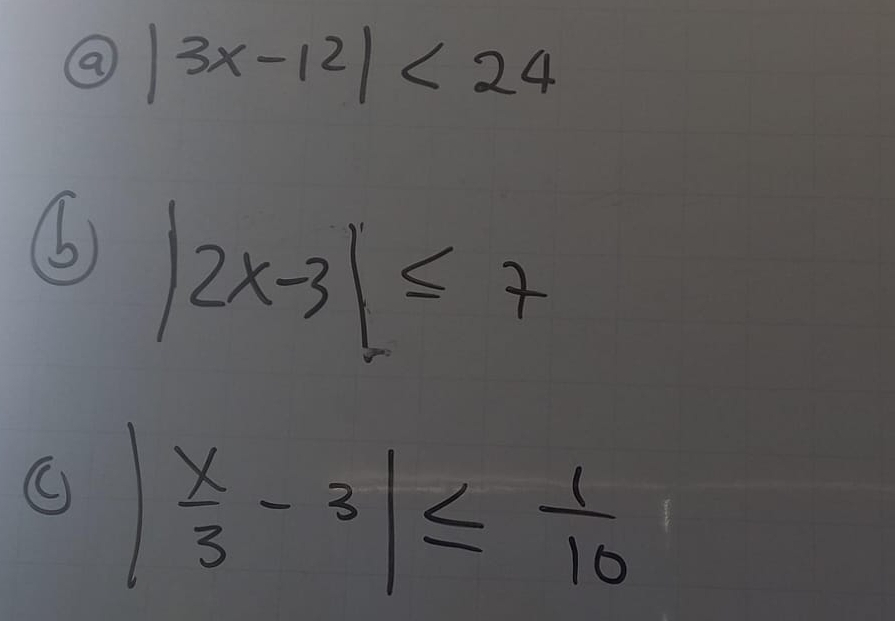 ⓐ |3x-12| < 24
ⓑ |2x-3| ≤ 7
ⓒ |x/3 - 3| ≤ 1/10